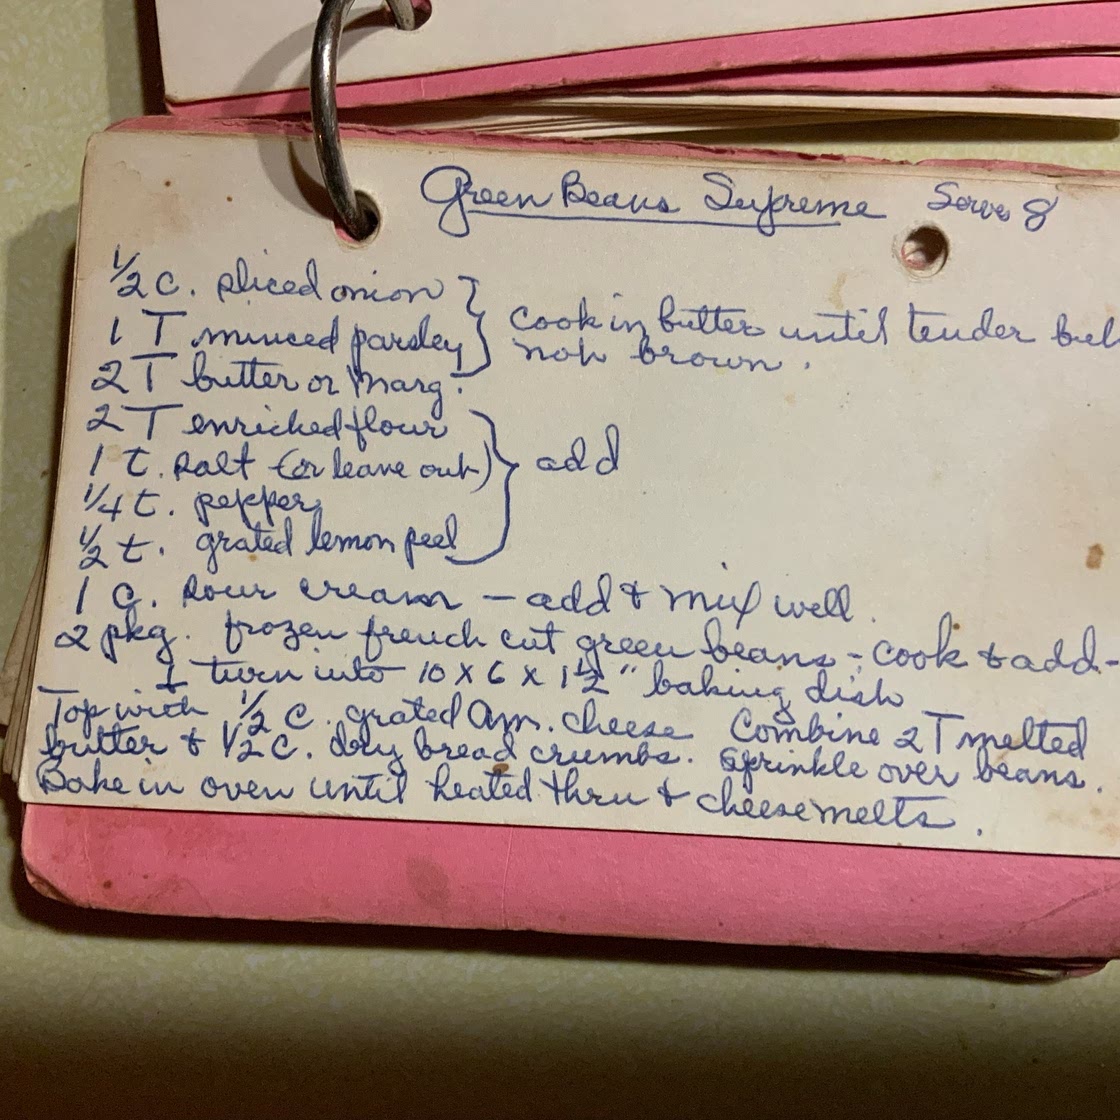 Green Beans Supreme Serve 8
1/2 c. sliced onion
1 T minced parsley
2 T butter or marg.
cook in butter until tender but
not brown.
2 T enriched flour
1 t. salt (or leave out)
1/4 t. pepper
1/2 t. grated lemon peel
add
1 c. sour cream - add & mix well.
2 pkg. frozen french cut green beans - cook & add -
& turn into 10 x 6 x 1 1/2" baking dish
Top with 1/2 c. grated Am. cheese Combine 2 T melted
butter & 1/2 c. dry bread crumbs. Sprinkle over beans.
Bake in oven until heated thru & cheese melts.